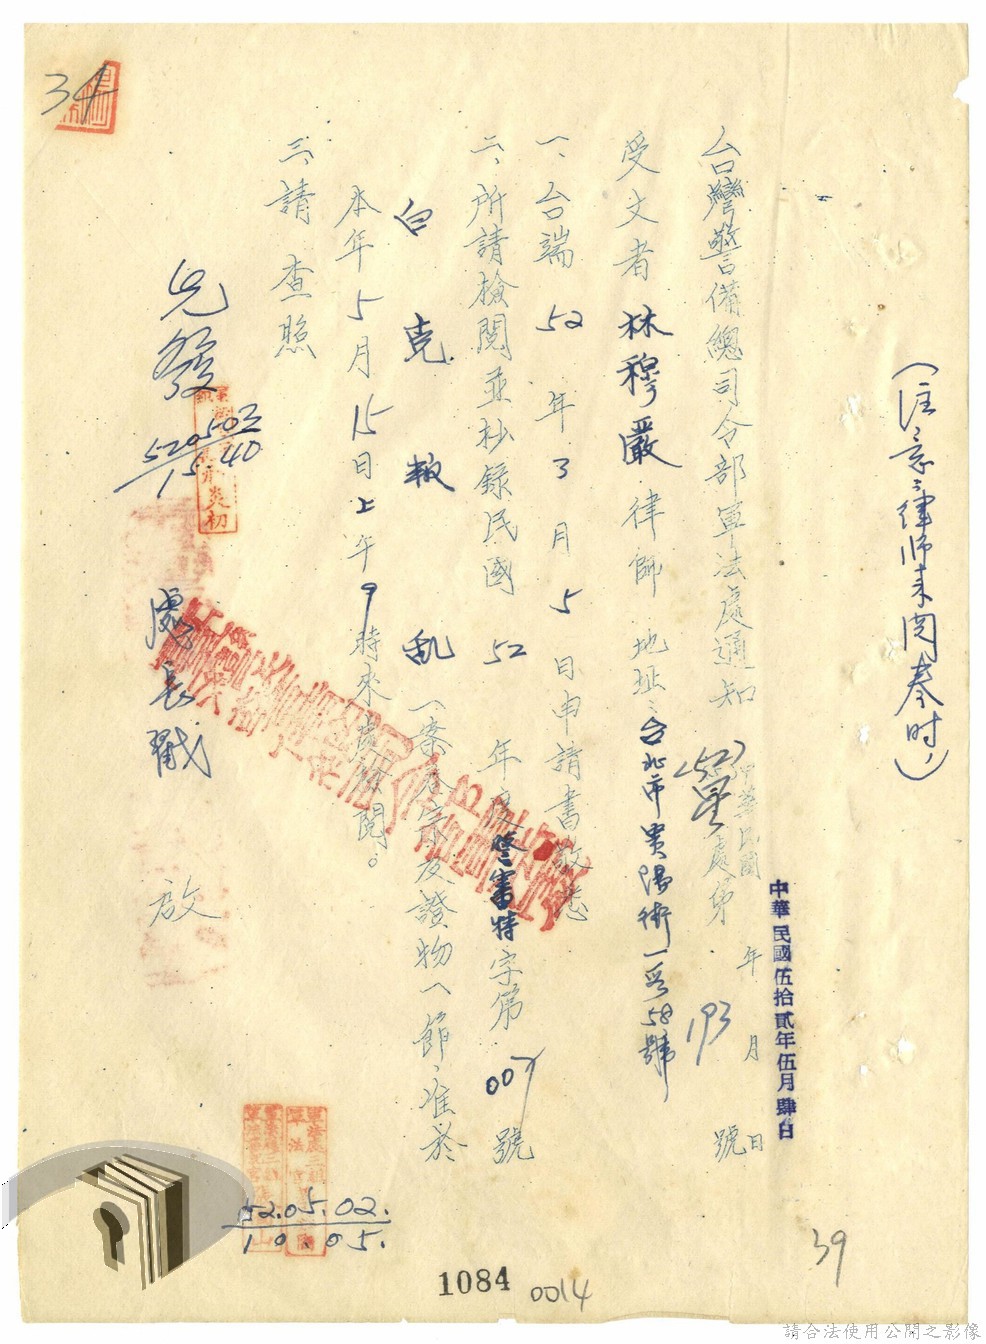 （注意：律师来閱卷时，）
中華民國伍拾貳年伍月肆日
中華民國 年 月 日
台灣警備總司令部軍法處通知
(52) 處第 193 號
受文者 林穆嚴 律師 地址：台北市貴陽街一段58號
一、台端 52 年 3 月 5 日申請書敬悉
二、所請檢閱並抄錄民國 52 年度警審特字第 007 號
白克叛乱一案卷宗及證物一節，准於
本年5月15日上午9時來處檢閱。
三、請查照
先發
520503
1540
處長戳 啟
52.05.02.
10.05.
34
39
1084
0014
請合法使用公開之影像